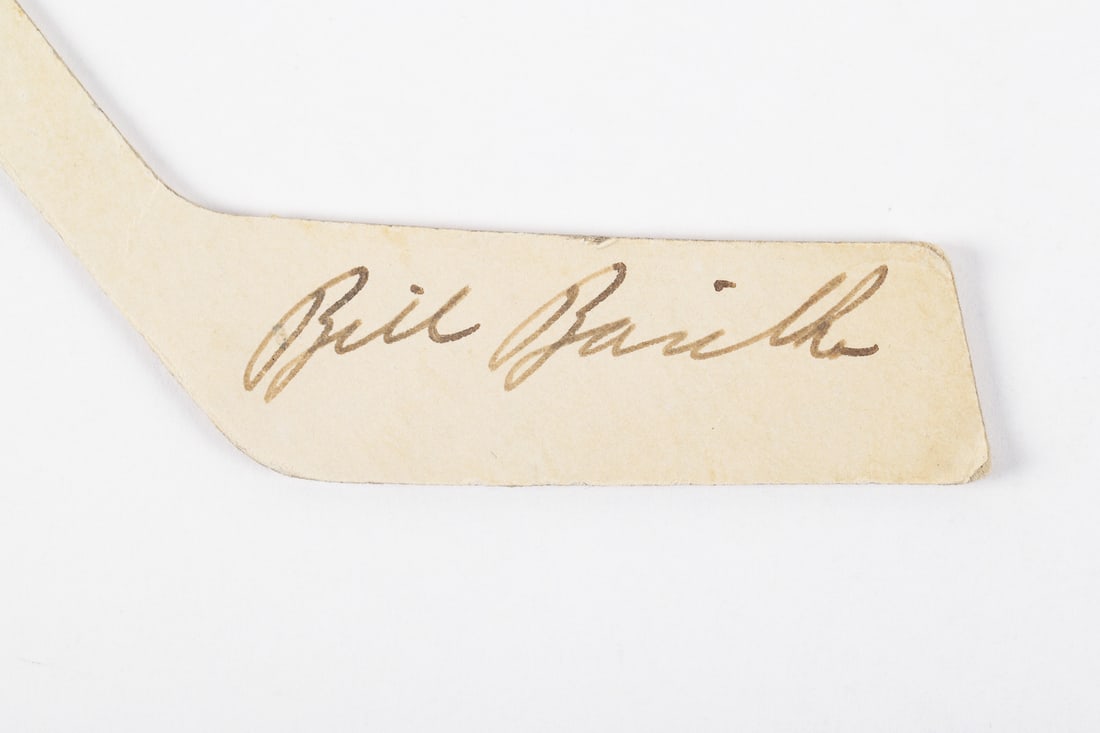 Bill Barilko